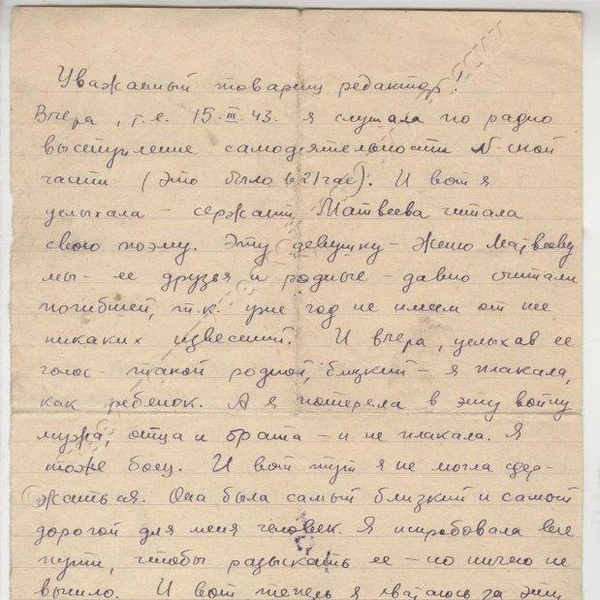 Уважаемый товарищ редактор!
Вчера, т.е. 15.III.43. я слушала по радио
выступление самодеятельности N-ской
части (Это было в 21 час). И вот я
услыхала - сержант Матвеева читала
свою поэму. Эту девушку - Женю Матвееву
мы - ее друзья и родные - давно считали
погибшей, т.к. уже год не имеем от нее
никаких известий. И вчера, услыхав ее
голос - такой родной, близкий - я плакала,
как ребенок. А я потеряла в эту войну
мужа, отца и брата - и не плакала. Я
тоже боец. И вот тут я не могла сдер-
жаться. Она была самый близкий и самый
дорогой для меня человек. Я испробовала все
пути, чтобы разыскать ее - но ничего не
вышло. И вот теперь я хватаюсь за эту